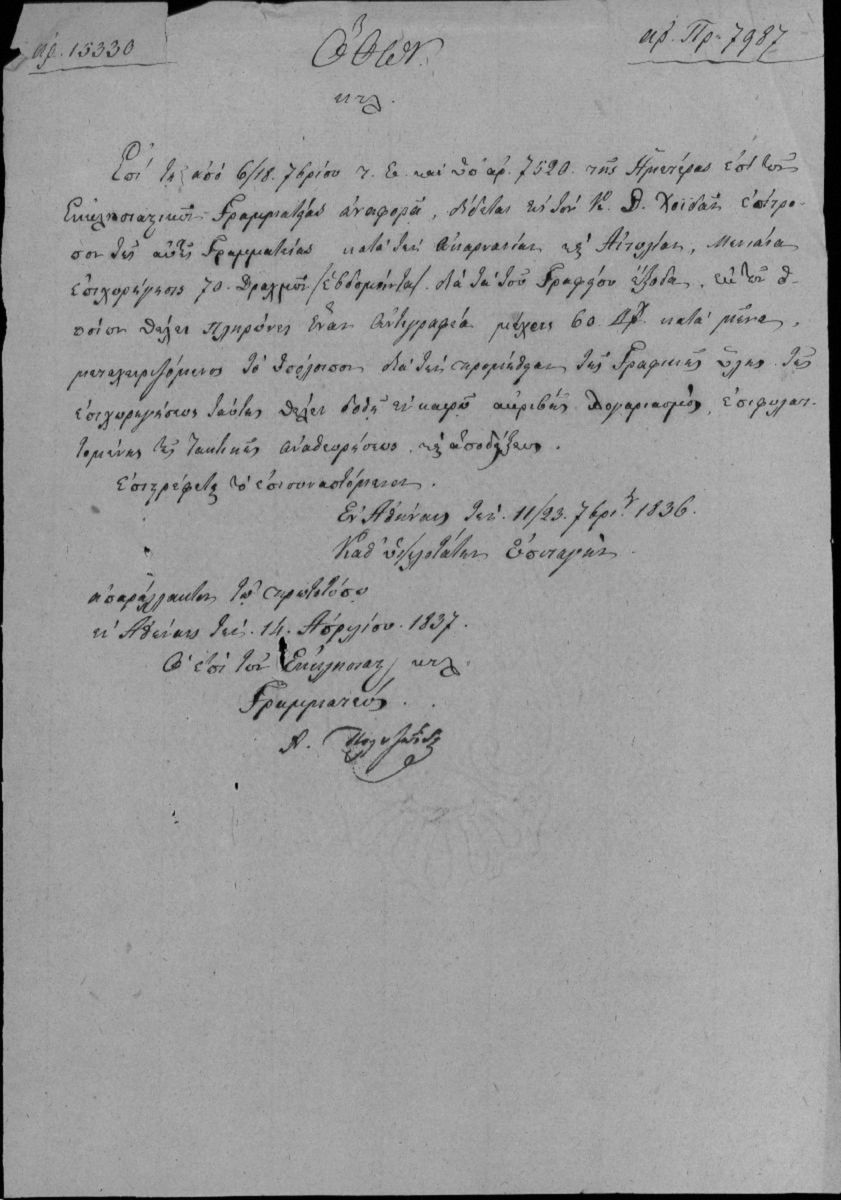 αρ. 15330
αρ. Πρ. 7987
Ὄθων
κτλ.
Ἐπὶ τῆς ἀπὸ 6/18. 7βρίου τ. ἔ. καὶ ὑπ' ἀρ. 7520. τῆς Ἡμετέρας ἐπὶ τῶν
Ἐκκλησιαστικῶν Γραμματείας ἀναφορᾶς, δίδεται εἰς τὸν Κ. Δ. ἐπίτρο-
πον τῆς αὐτῆς Γραμματείας κατὰ τὴν Ἀκαρνανίαν κ Αἰτωλίαν, Μηνιαία
ἐπιχορήγησις 70. Δραχμῶν /Ἑβδομήντα/ διὰ τὰ τοῦ Γραφείου ἔξοδα, ἐκ τῶν ὁ-
ποίων θέλει πληρώνει ἕναν Ἀντιγραφέα μέχρις 60 Δρ. κατὰ μῆνα,
μεταχειριζόμενος τὸ ὑπόλοιπον διὰ τὴν προμήθειαν τῆς Γραφικῆς ὕλης. τῆς
ἐπιχορηγήσεως ταύτης θέλει δοθῆ ἐν καιρῷ ἀκριβὴς λογαριασμός, ἐπιφυλατ-
τομένης τῆς τακτικῆς ἀναθεωρήσεως κ ἀποδείξεως.
Ἐπιστρέφεται τὸ ἐπισυναπτόμενον.
Ἐν Ἀθήναις τὴν. 11/23. 7βρίου 1836.
Καθ' ὑψηλοτάτην Ἐπιταγήν
ἀπαράλλακτον τῷ πρωτοτύπῳ
ἐν Ἀθήναις τὴν. 14. Ἀπριλίου. 1837.
Ὁ ἐπὶ τῶν Ἐκκλησιαστ/ κτλ.
Γραμματεύς.
Α. Πολυζωΐδης